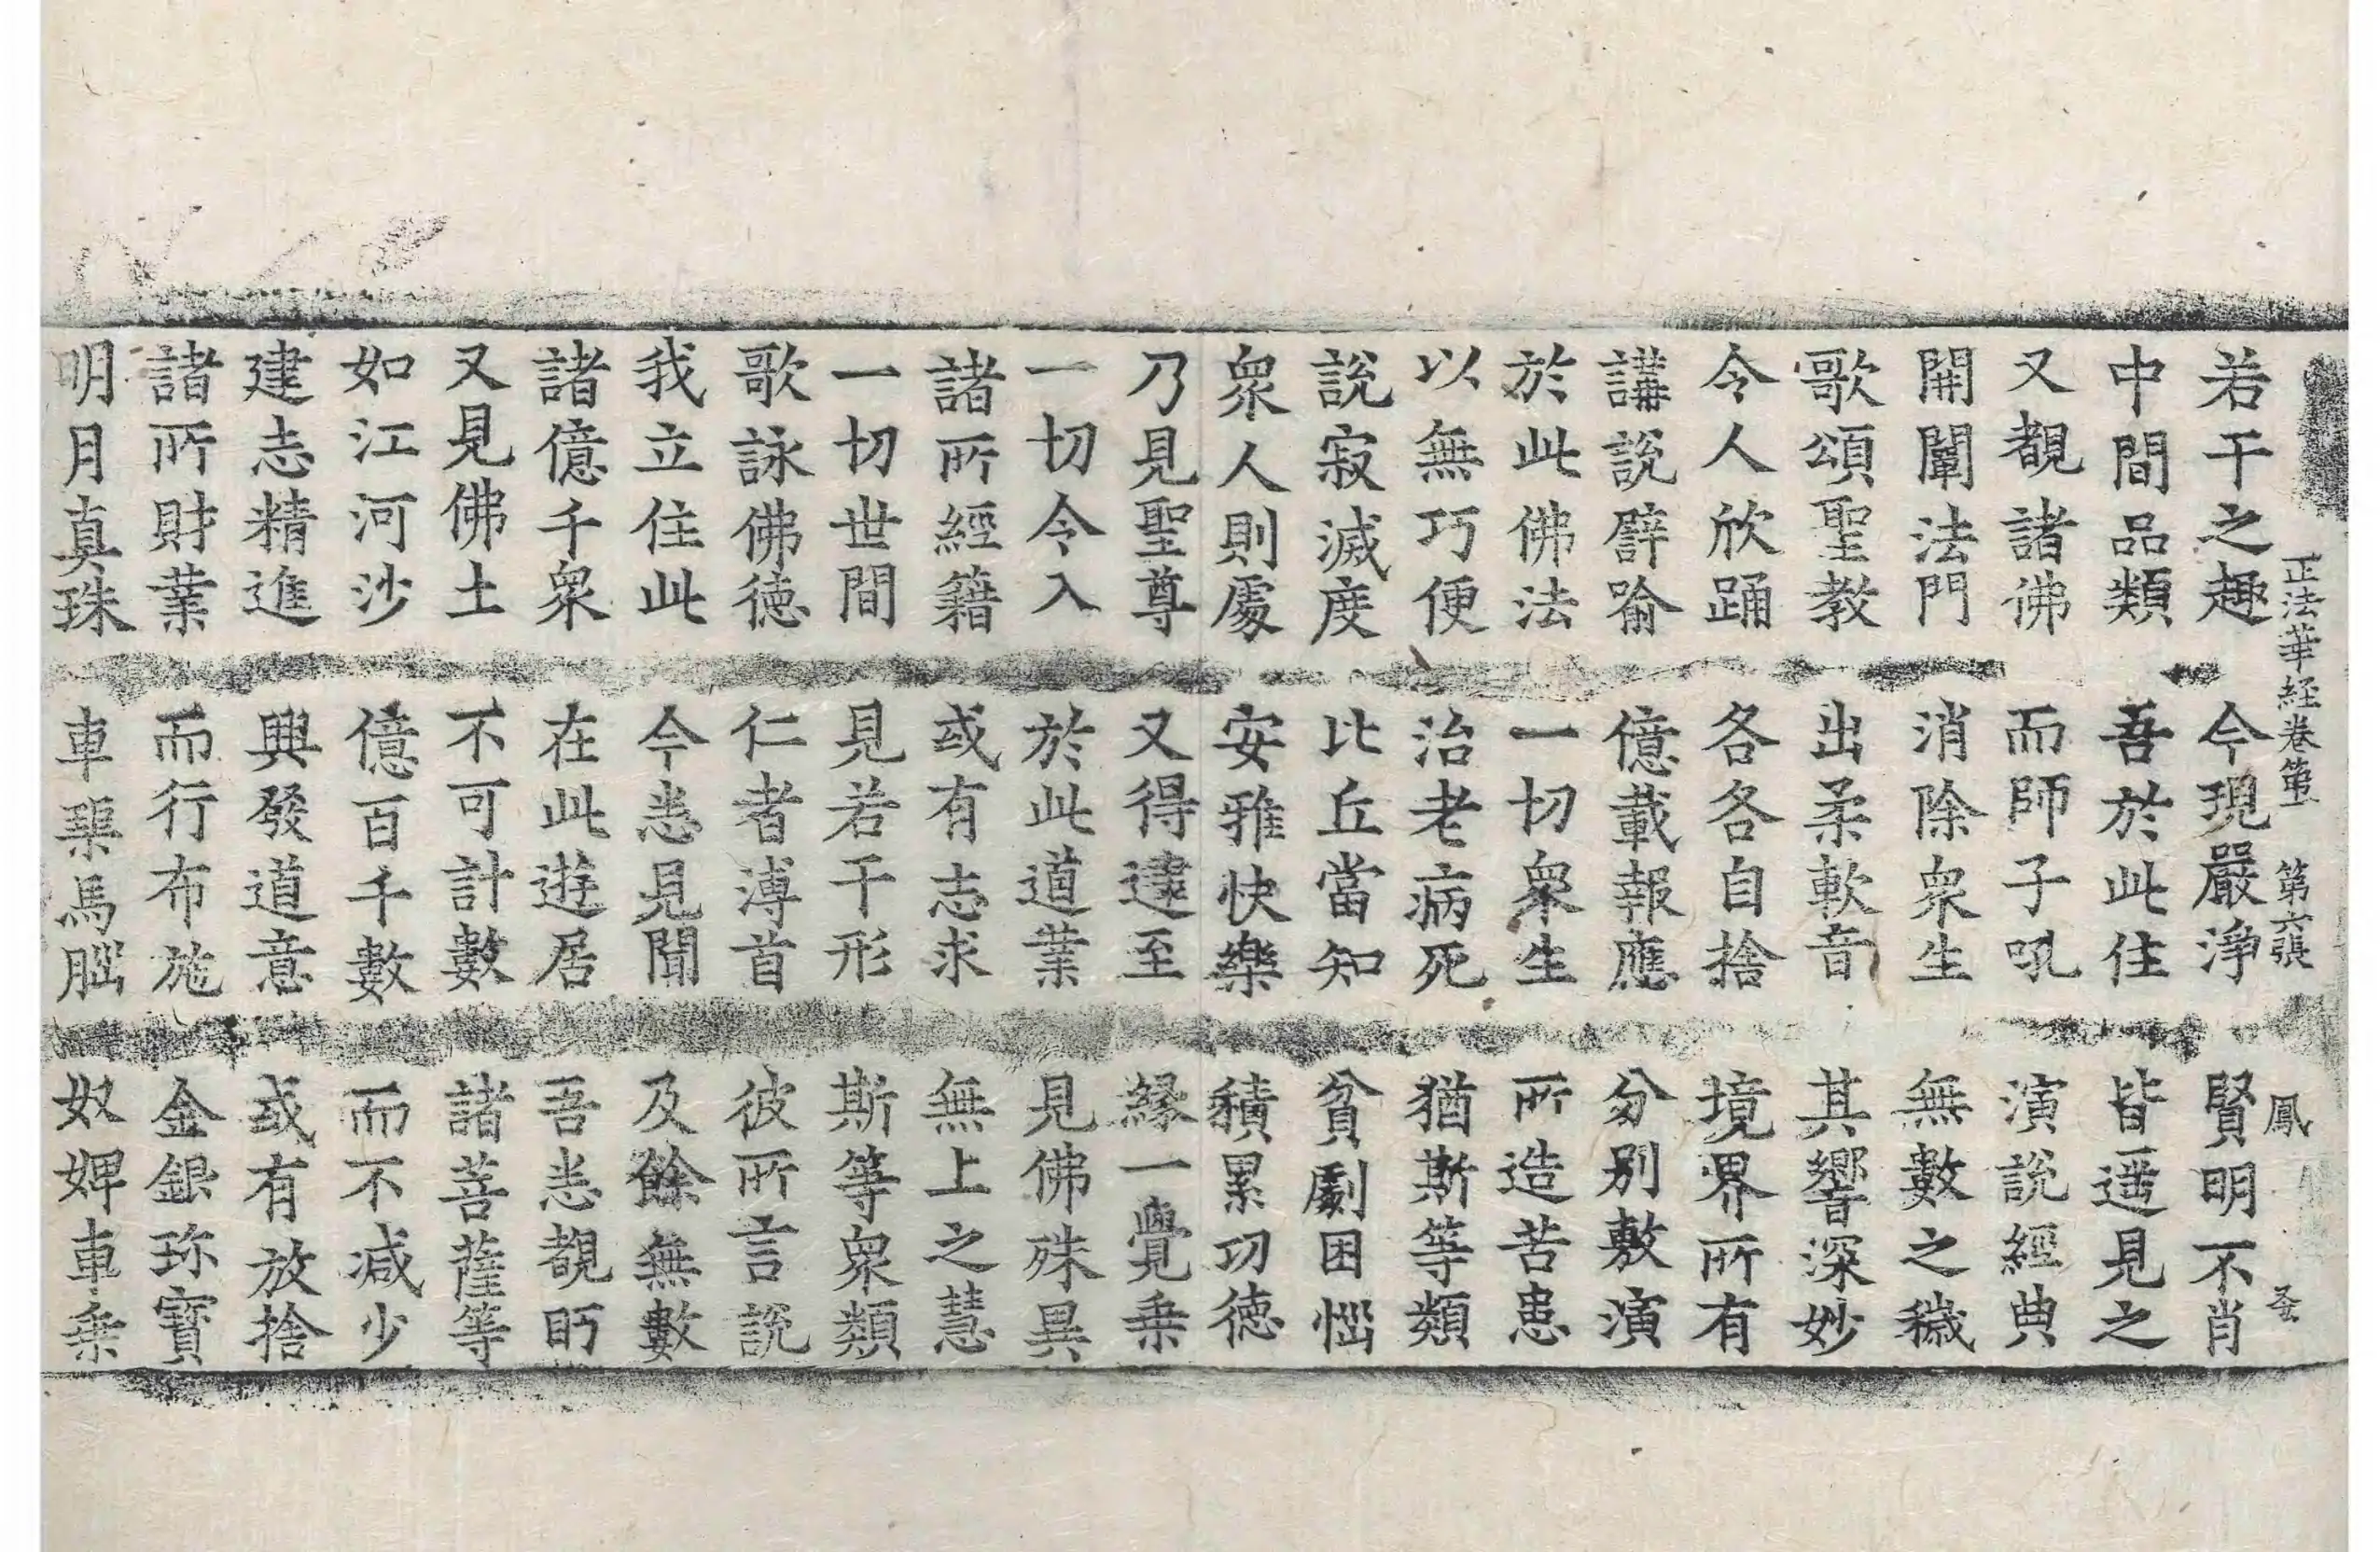 正法華經卷第一 第六張 鳳
若干之趣 今現嚴淨 賢明不肖
中間品類 吾於此住 皆遥見之
又覩諸佛 而師子吼 演說經典
開闡法門 消除衆生 無數之穢
歌頌聖教 出柔軟音 其響深妙
令人欣踊 各各自捨 境界所有
講說譬喻 億載報應 分別敷演
於此佛法 一切衆生 所造苦患
以無巧便 治老病死 猶斯等類
說寂滅度 比丘當知 貧劇困惱
衆人則處 安雅快樂 積累功德
乃見聖尊 又得逮至 緣一覺乗
一切令入 於此道業 見佛殊異
諸所經籍 或有志求 無上之慧
一切世間 見若干形 斯等衆類
歌詠佛德 仁者溥首 彼所言說
我立住此 今悉見聞 及餘無數
諸億千衆 在此遊居 吾悉覩眄
又見佛土 不可計數 諸菩薩等
如江河沙 億百千數 而不減少
建志精進 興發道意 或有放捨
諸所財業 而行布施 金銀珎寶
明月真珠 車璖馬腦 奴婢車乗